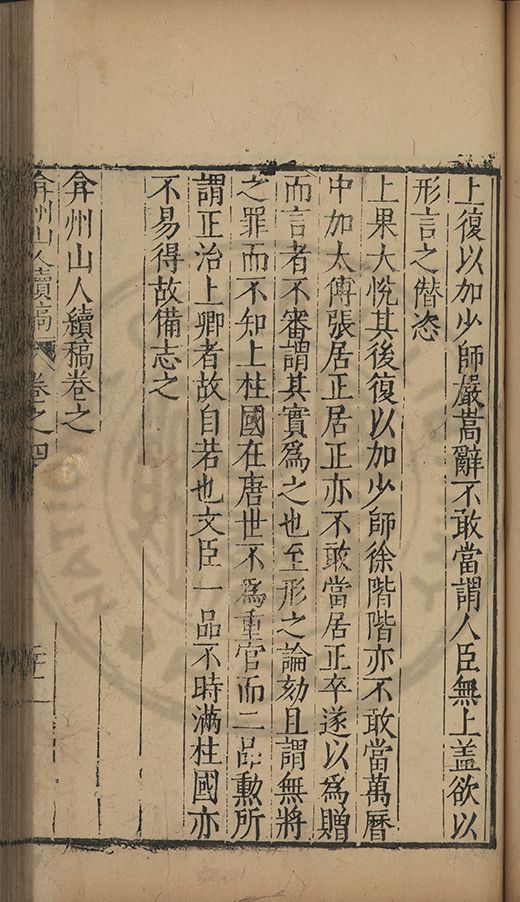 上復以加少師嚴嵩辭不敢當謂人臣無上蓋欲以
形言之僭恣
上果大悅其後復以加少師徐階階亦不敢當萬曆
中加太傅張居正居正亦不敢當居正卒遂以爲贈
而言者不審謂其實爲之也至形之論劾且謂無將
之罪而不知上柱國在唐世不爲重官而二品勳所
謂正治上卿者故自若也文臣一品不時滿柱國亦
不易得故備志之
弇州山人續稿卷之
弇州山人續稿 卷之四